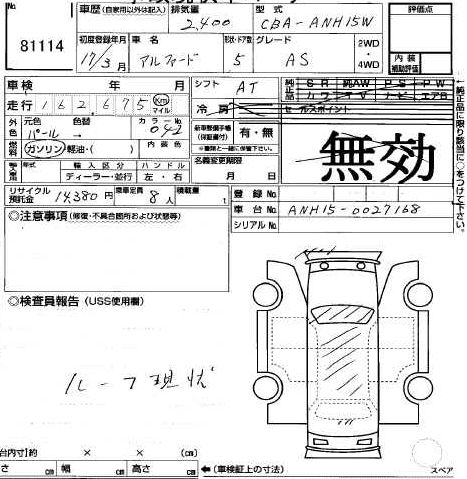 No. 81114
車歴 (自家用以外は記入) 排気量 2,400 型式 CBA-ANH15W 評価点
初度登録年月 17/3月 車名 アルファード 形状・ドア数 5 グレード AS 2WD・4WD
内装補助評価
車検 年 月 シフト AT 純正品 SR 純AW PS PW
走行 162,675 Km マイル 冷房 カワ TV ナビ エアB
外色 元色 パール→ 色替 カラーNo 042 セールスポイント
新車整備手帳(保証書付) 有・無
※書類と一緒に保管下さい。
燃料 ガソリン・軽油・( ) 名義変更期限 月 日
無効
輸入車 輸入区分 ディーラー・並行 ハンドル 左・右
リサイクル預託金 14,380円 乗車定員 8人 積載量 t 登録No.
車台No. ANH15-0027168
シリアルNo.
◎注意事項 (修復・不具合箇所および状態等)
◎検査員報告 (USS使用欄)
ルーフ現状
荷台内寸)約 × ×
長さ cm 幅 cm 高さ cm ←(車検証上の寸法)
スペア
↑純正品に限り該当に○をつけて下さい。